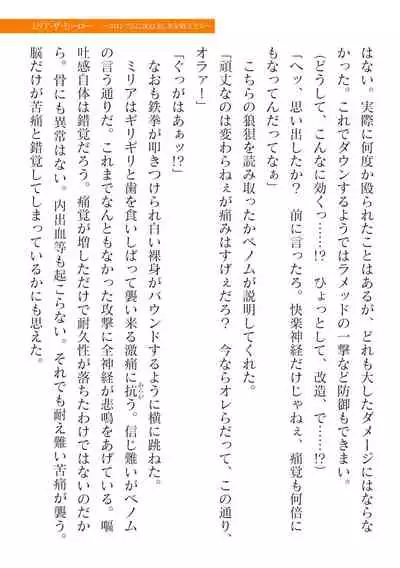 はない。実際に何度か殴られたことはあるが、どれも大したダメージにはならな
かった。これでダウンするようではラメッドの一撃など防御もできまい。
（どうして、こんなに効くっ……!?　ひょっとして、改造、で……!?）
「ヘッ、思い出したか？　前に言ったろ。快楽神経だけじゃねぇ、痛覚も何倍に
もなってんだってなぁ」
こちらの狼狽を読み取ったかペノムが説明してくれた。
「頑丈なのは変わらねぇが痛みはすげぇだろ？　今ならオレらだって、この通り、
オラァ！」
「ぐっがはあぁッ!?」
なおも鉄拳が叩きつけられ白い裸身がバウンドするように横に跳ねた。
ミリアはギリギリと歯を食いしばって襲い来る激痛に抗う。信じ難いがペノム
の言う通りだ。これまでなんともなかった攻撃に全神経が悲鳴をあげている。嘔
吐感自体は錯覚だろう。痛覚が増しただけで耐久性が落ちたわけではないのだか
ら。骨にも異常はない。内出血等も起こらない。それでも耐え難い苦痛が襲う。
脳だけが苦痛と錯覚してしまっているかにも思えた。